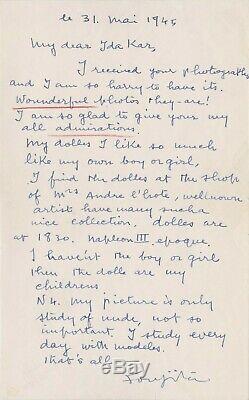 le 31. Mai 1945
My dear Ida Kar,
I received your photographs
and I am so harry to have its.
Wounderful photos they are!
I am so glad to give your my
all admirations.
My dolles I like so much
like my own boy or girl,
I find the dolles at the shop
of Mrs Andre l'hote, wellnown
artists have many sucha
nice collection, dolles are
at 1830. Napleon III epoque,
I haven't the boy or girl
then the dolls are my
childrens
N4. My picture is only
study of nude, not so
important. I study every
day with modeles.
that's all
Foujita
bidStart